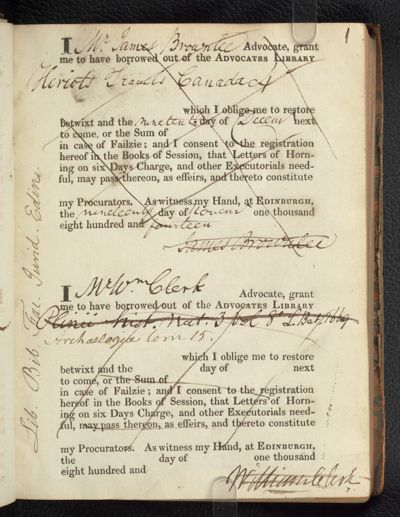 1
I Mr. James Brownlee Advocate, grant
me to have borrowed out of the ADVOCATES LIBRARY
Heriots Travels Canada
which I oblige me to restore
betwixt and the nineteenth day of Decem next
to come, or the Sum of
in case of Failzie; and I consent to the registration
hereof in the Books of Session, that Letters of Horn-
ing on six Days Charge, and other Executorials need-
ful, may pass thereon, as effeirs, and thereto constitute
my Procurators. As witness my Hand, at EDINBURGH,
the nineteenth day of Novem one thousand
eight hundred and fourteen
James Brownlee
I Mr Wm Clerk Advocate, grant
me to have borrowed out of the ADVOCATES LIBRARY
Plinii Hist. Nat. 3 vol 8o L. Bat. 1669
Archaelogia tom 15.
which I oblige me to restore
betwixt and the day of next
to come, or the Sum of
in case of Failzie; and I consent to the registration
hereof in the Books of Session, that Letters of Horn-
ing on six Days Charge, and other Executorials need-
ful, may pass thereon, as effeirs, and thereto constitute
my Procurators. As witness my Hand, at EDINBURGH,
the day of one thousand
eight hundred and
William Clerk
Lib. Bib. Fac. Jurid. Edinr